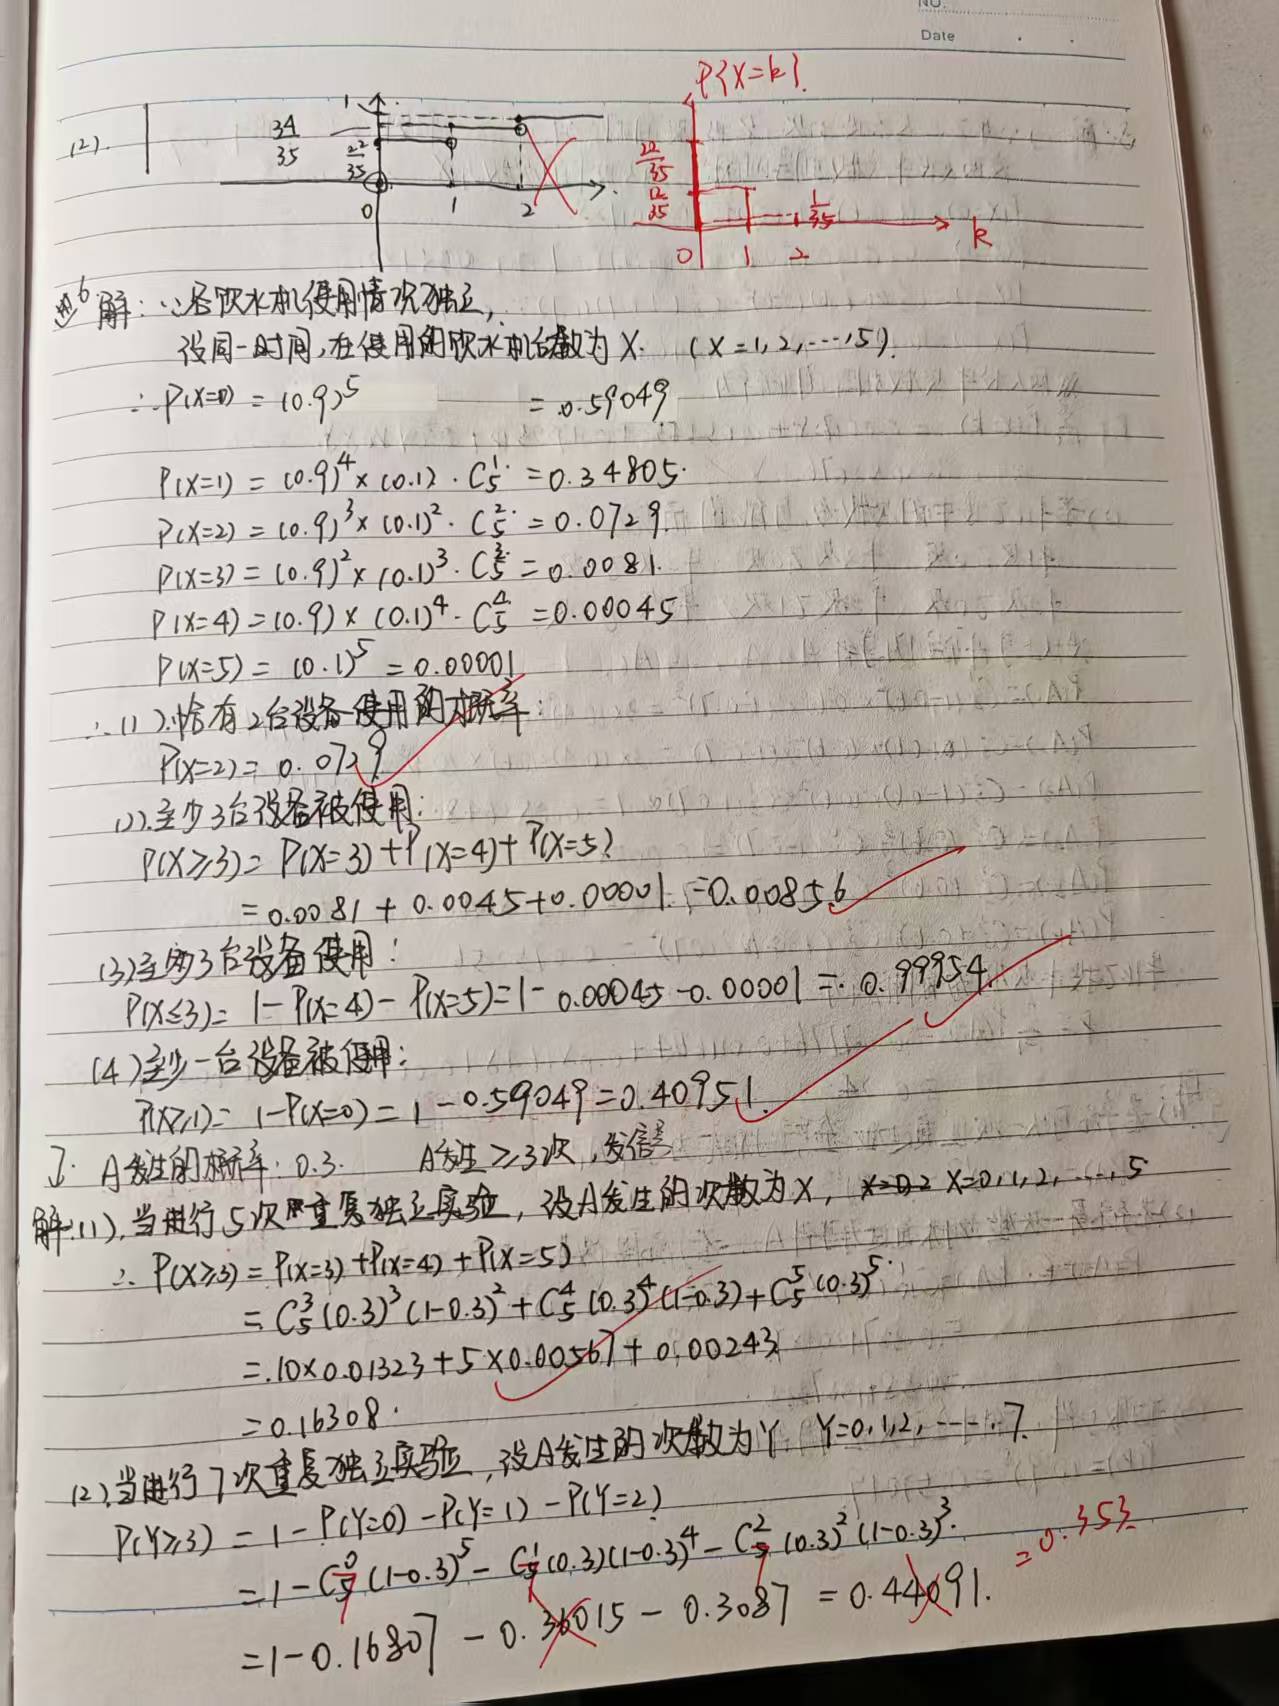 NO.
Date
P{X=k}.
(2).
34/35
22/35
1
0 1 2
22/35
12/35
1/35
0 1 2 k
6 解:∵各饮水机使用情况独立,
设同一时间,在使用的饮水机台数为X. (X=1,2,…,5).
∴P(X=0) = (0.9)^5 = 0.59049
P(X=1) = (0.9)^4 × (0.1) · C_5^1 = 0.34805.
P(X=2) = (0.9)^3 × (0.1)^2 · C_5^2 = 0.0729.
P(X=3) = (0.9)^2 × (0.1)^3 · C_5^3 = 0.0081.
P(X=4) = (0.9) × (0.1)^4 · C_5^4 = 0.00045
P(X=5) = (0.1)^5 = 0.00001
∴(1).恰有2台设备使用的概率:
P(X=2) = 0.0729
(2).至少3台设备被使用:
P(X≥3) = P(X=3)+P(X=4)+P(X=5)
=0.0081 + 0.0045+0.00001. =0.00856
(3)至多3台设备使用:
P(X≤3)= 1-P(X=4)-P(X=5)=1-0.00045-0.00001=0.99954.
(4)至少一台设备被使用:
P(X≥1)= 1-P(X=0) = 1-0.59049=0.40951.
7. A发生的概率:0.3. A发生≥3次,发信号
解:(1).当进行5次重复独立实验,设A发生的次数为X, X=0,1,2,…,5
∴ P(X≥3) = P(X=3)+P(X=4)+P(X=5)
= C_5^3 (0.3)^3 (1-0.3)^2 + C_5^4 (0.3)^4 (1-0.3) + C_5^5 (0.3)^5.
=.10×0.01323+5×0.00567+0.00243
=0.16308.
(2).当进行7次重复独立实验,设A发生的次数为Y Y=0,1,2,……,7.
P(Y≥3) = 1-P(Y=0)-P(Y=1)-P(Y=2)
= 1-C_5^0 (1-0.3)^5 - C_5^1 (0.3)(1-0.3)^4 - C_5^2 (0.3)^2 (1-0.3)^3.
=1-0.16807 - 0.36015 - 0.3087 = 0.44091. =0.353